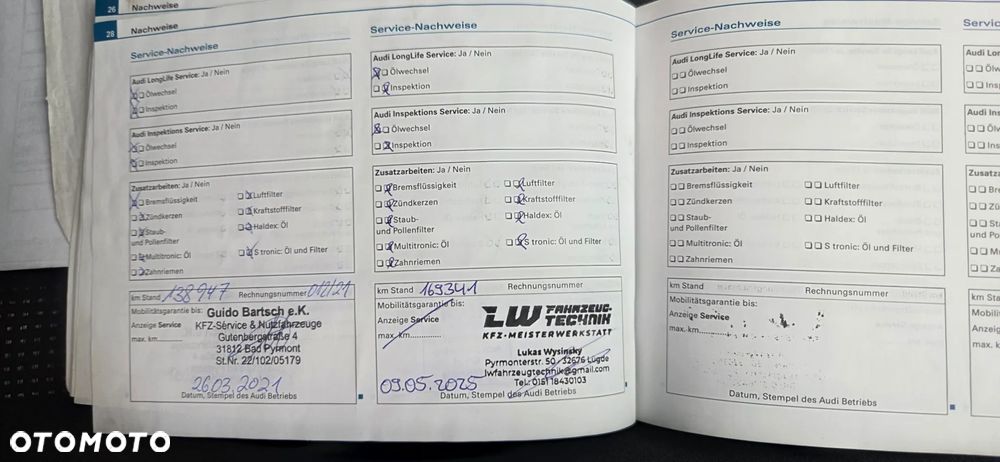 26 Nachweise
28 Nachweise
Service-Nachweise
Audi LongLife Service: Ja / Nein
Ölwechsel
Inspektion
Audi Inspektions Service: Ja / Nein
Ölwechsel
Inspektion
Zusatzarbeiten: Ja / Nein
Bremsflüssigkeit
Luftfilter
Zündkerzen
Kraftstofffilter
Staub-
und Pollenfilter
Haldex: Öl
Multitronic: Öl
S tronic: Öl und Filter
Zahnriemen
km Stand 138947 Rechnungsnummer 012/21
Mobilitätsgarantie bis:
Anzeige Service
max. km
Guido Bartsch e.K.
KFZ-Service & Nutzfahrzeuge
Gutenbergstraße 4
31812 Bad Pyrmont
St.Nr. 22/102/05179
26.03.2021
Datum, Stempel des Audi Betriebs
Service-Nachweise
Audi LongLife Service: Ja / Nein
Ölwechsel
Inspektion
Audi Inspektions Service: Ja / Nein
Ölwechsel
Inspektion
Zusatzarbeiten: Ja / Nein
Bremsflüssigkeit
Luftfilter
Zündkerzen
Kraftstofffilter
Staub-
und Pollenfilter
Haldex: Öl
Multitronic: Öl
S tronic: Öl und Filter
Zahnriemen
km Stand 169341 Rechnungsnummer
Mobilitätsgarantie bis:
Anzeige Service
max. km
LW FAHRZEUG-
TECHNIK
KFZ-MEISTERWERKSTATT
Lukas Wysinsky
Pyrmonterstr. 50 · 32676 Lügde
lwfahrzeugtechnik@gmail.com
Tel.: 0151 18430103
09.05.2025
Datum, Stempel des Audi Betriebs
Service-Nachweise
Audi LongLife Service: Ja / Nein
Ölwechsel
Inspektion
Audi Inspektions Service: Ja / Nein
Ölwechsel
Inspektion
Zusatzarbeiten: Ja / Nein
Bremsflüssigkeit
Luftfilter
Zündkerzen
Kraftstofffilter
Staub-
und Pollenfilter
Haldex: Öl
Multitronic: Öl
S tronic: Öl und Filter
Zahnriemen
km Stand Rechnungsnummer
Mobilitätsgarantie bis:
Anzeige Service
max. km
Datum, Stempel des Audi Betriebs
Servic
Audi Lo
Ölw
Ins
Audi In
Ölw
Ins
Zusatz
Bre
Zü
Sta
und Po
Mu
Za
km Sta
Mobili
Anzei
max.
OTOMOTO